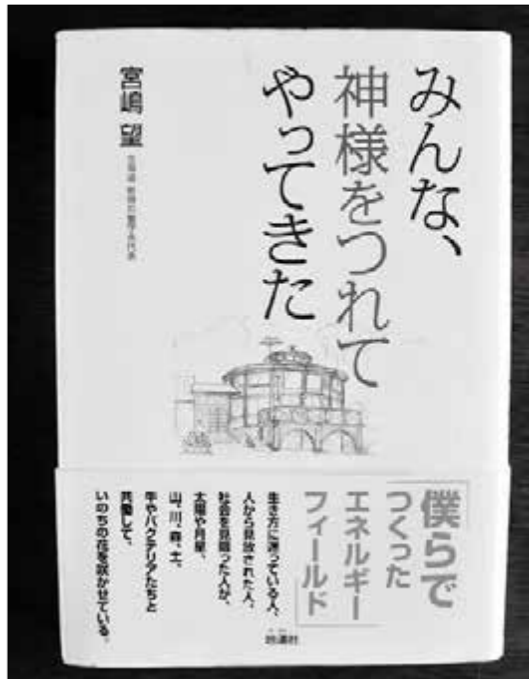 みんな、
神様をつれて
やってきた
宮嶋 望
「僕らで
つくった
エネルギー
フィールド」
生き方に迷っている人、
人から見放された人、
社会を見限った人が、
太陽や月星、
山、川、森、土、
牛やバクテリアたちと
共働して、
いのちの花を咲かせている。
地湧社